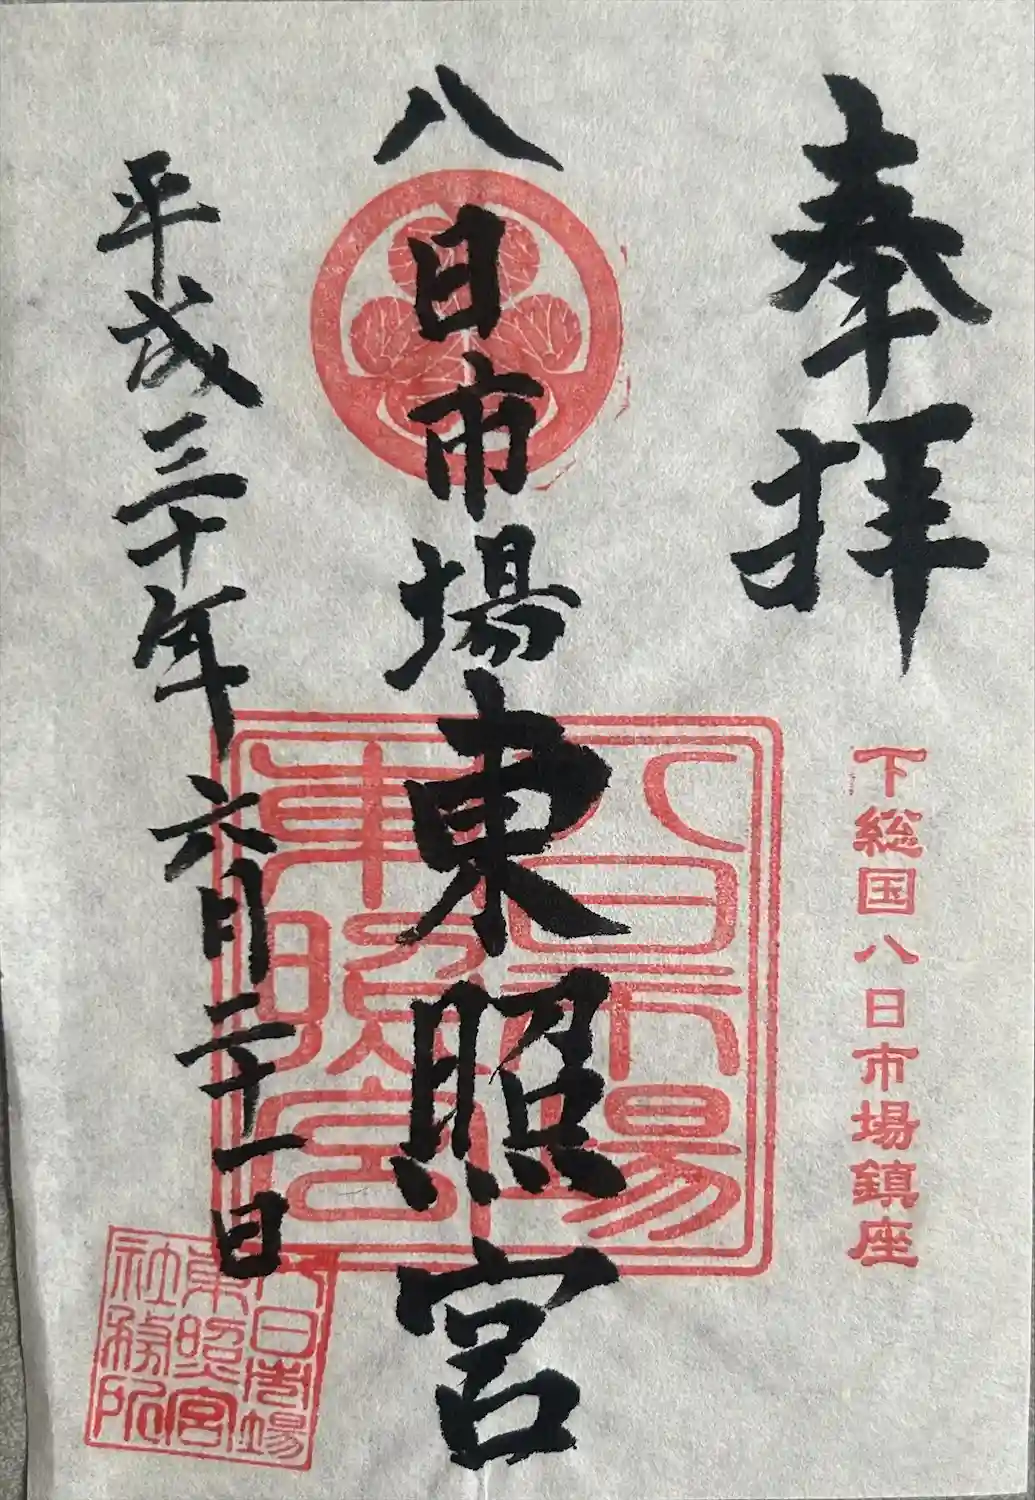 奉拝
下総国八日市場鎮座
八日市場東照宮
八日市場東照宮
平成三十年六月二十一日
八日市場東照宮社務所